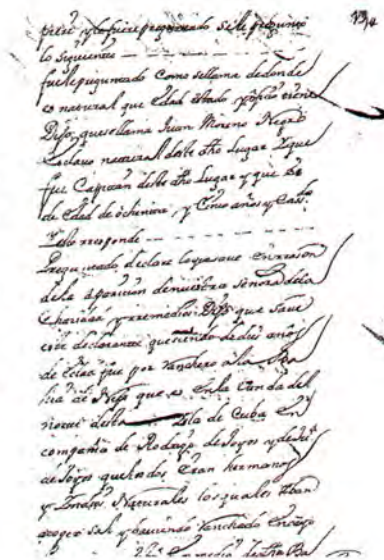 fuere preguntado se le pregunto
lo siguiente
fuele preguntado como se llama de donde
es natural que Edad estado y oficio tiene
Dijo que se llama Juan Moreno Negro
Esclavo natural deste dho Lugar y que
fue Capitan deste dho Lugar y que es
de Edad de ochenta y Cinco años y Cas.do
Y esto rresponde
Preguntado declare lo que save en rrason
dela aparicion de nuestra señora dela
Charidad y rremedios Dijo que save
este declarante que siendo de dies años
de Edad fue por rranchero a la Ba
hia de Nipe que es en la vanda del
norte desta Isla de Cuba en
compañia de Rodrigo de Joyos y de Ju.º
de Joyos que los dos Eran hermanos
y Indios Naturales los quales Iban
a coger sal y haviendo rranchado en cayo
en medio de dha Ba